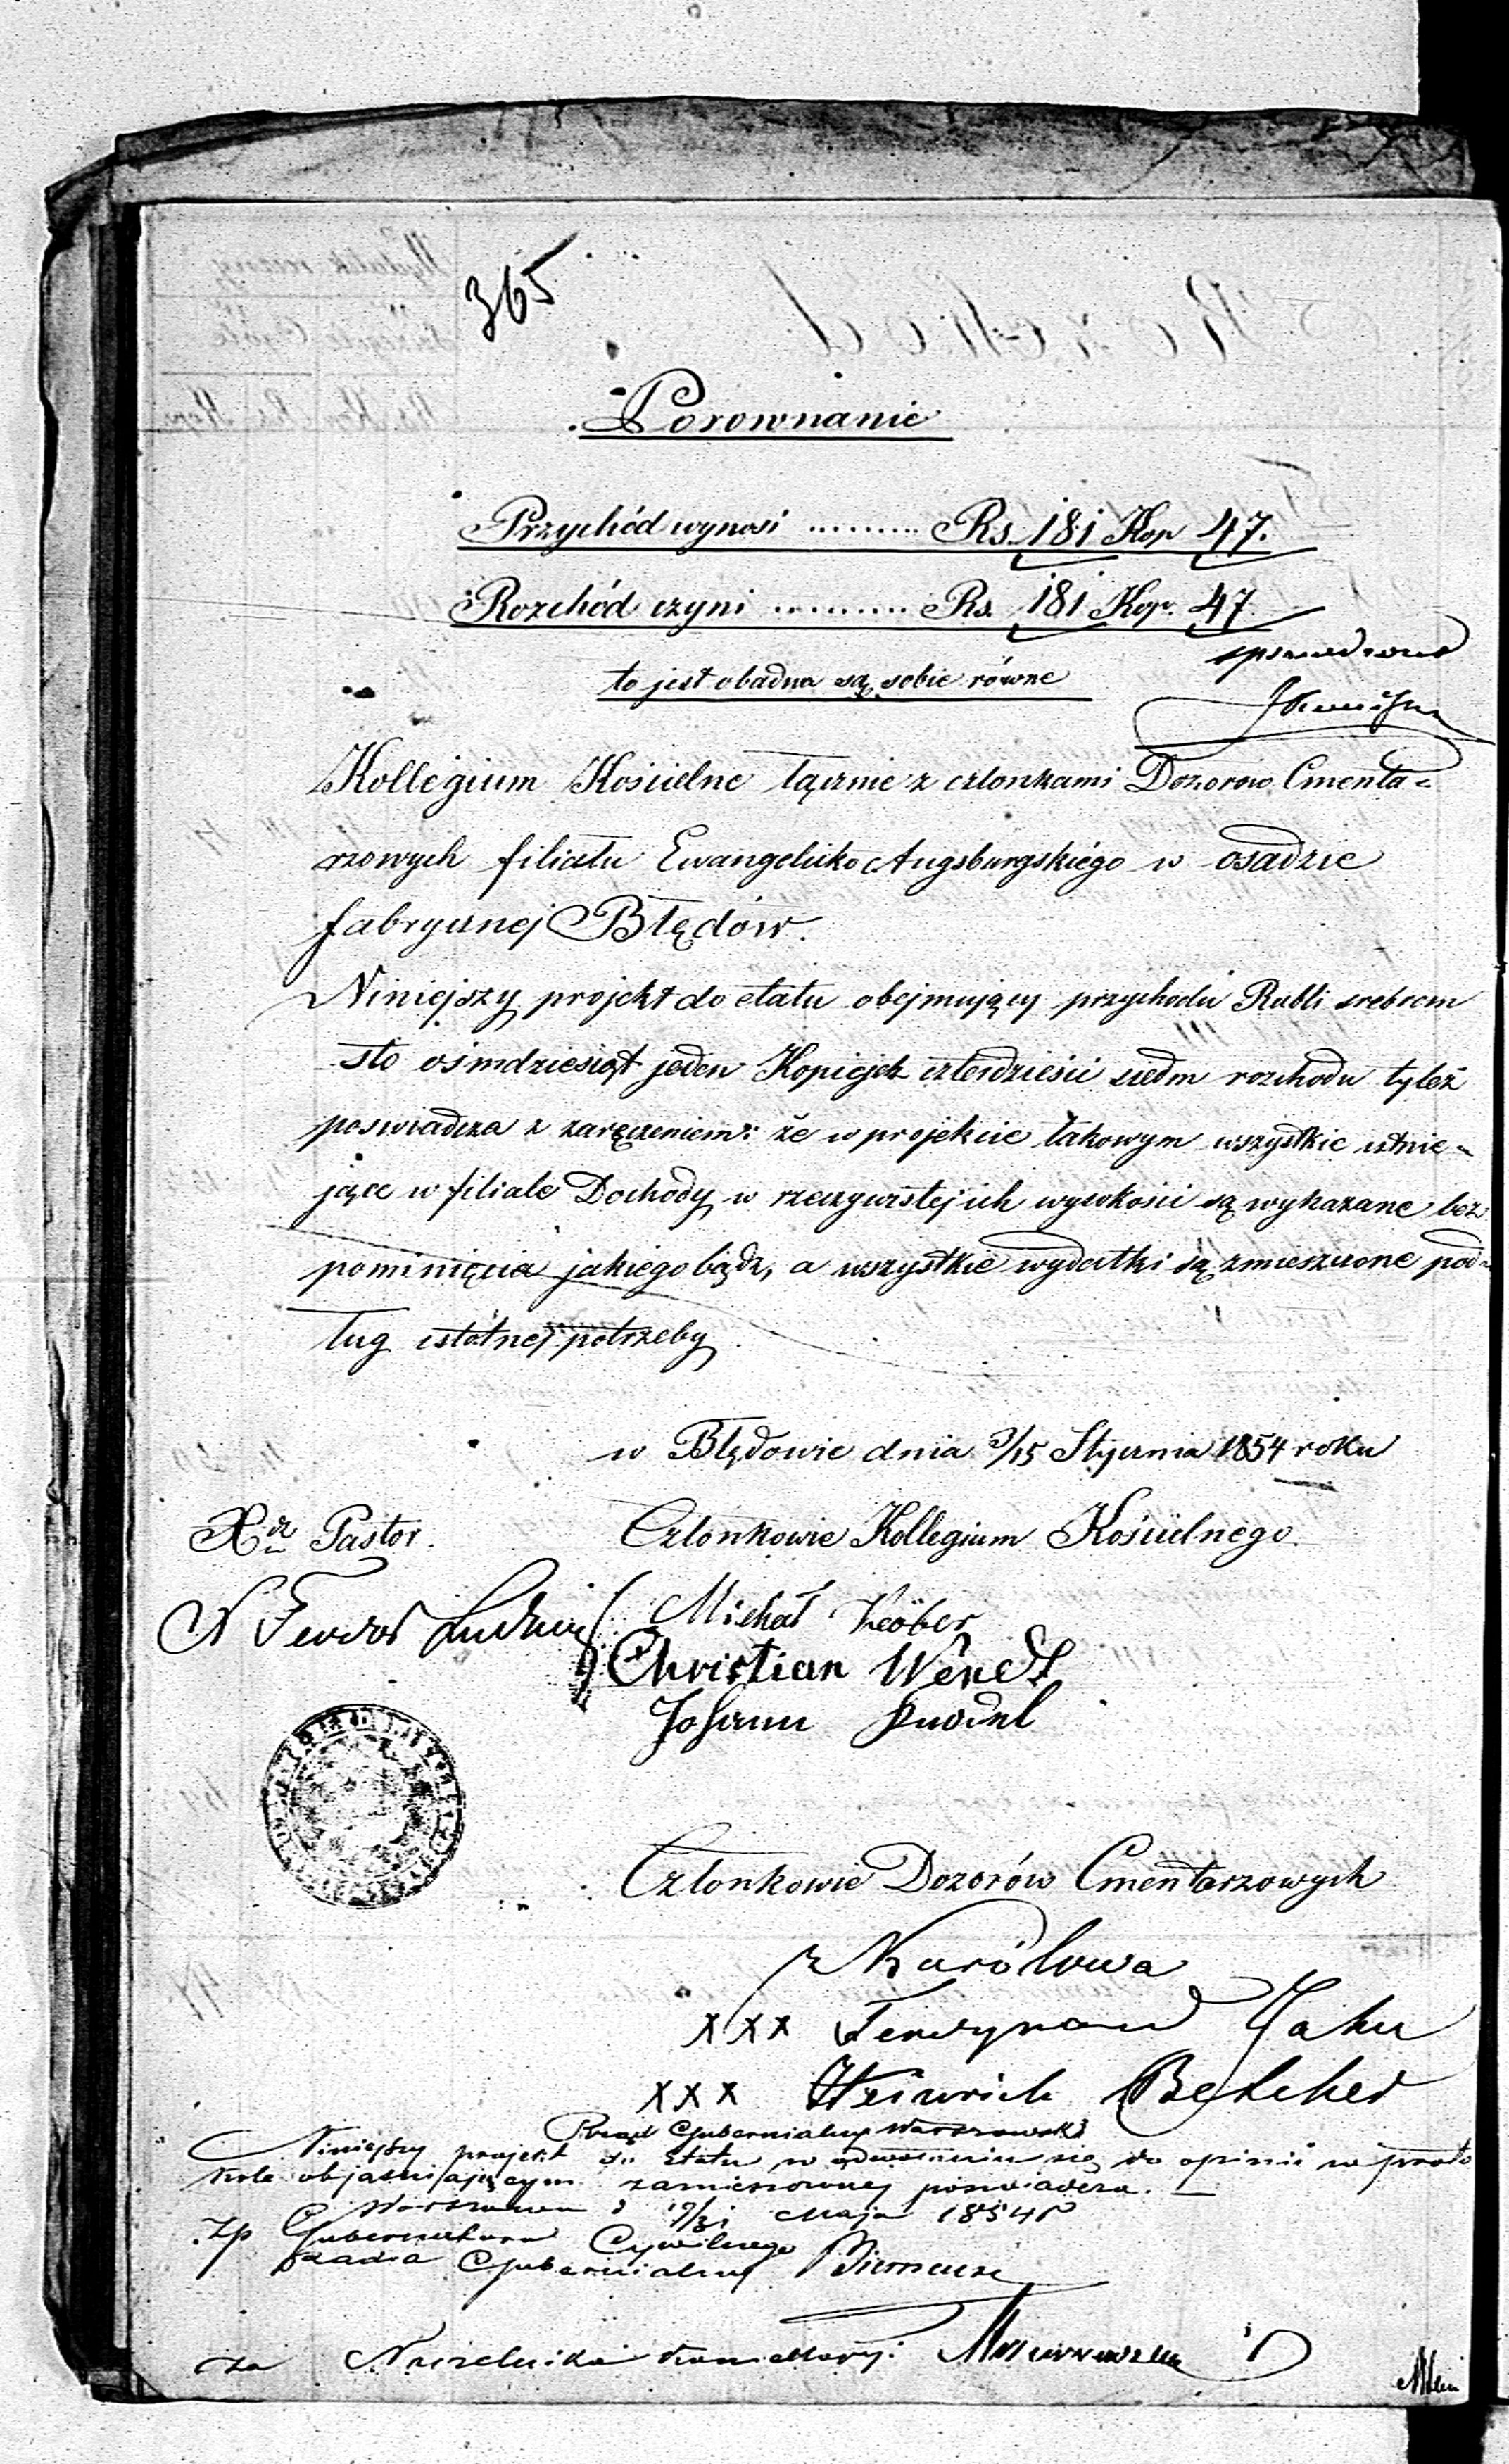 365
Porownanie
Przychód wynosi ......... Rs. 181 Kop 47.
Rozchód czyni ......... Rs. 181 Kop. 47
sprawdzono
to jest obadwa są sobie równe
Kollegium Kościelne łącznie z członkami Dozorow Cmenta=
rzowych filiału Ewangelicko Augsburgskiégo w osadzie
fabrycznej Błędów.
Niniejszy projekt do etatu obejmujący przychodu Rubli srebrem
sto ośmdziesiąt jeden Kopiejek czterdzieści siedm rozchodu tyleż
poswiadcza z zaręczeniem: że w projekcie takowym wszystkie istnie=
jące w filiale Dochody w rzeczywistej ich wysokości są wykazane bez
pominięcia jakiego bądz, a wszystkie wydatki są zmieszczone pod=
ług istótnej potrzeby
w Błędowie dnia 3/15 Stycznia 1854 roku
Xdz Pastor. Członkowie Kollegium Kościelnégo.
Teodor Ludwig Michał Keöber
Christian Wendt
Johann
Członkowie Dozorów Cmentarzowych
z Karólewa
xxx Ferdynand Jahn
xxx Heinrich Betcher
Rząd Gubernialny Warszawski
Niniejszy projekt do Etatu w odwołaniu się do opinii w proto
kole objasniającym zamieszczonej poswiadcza. —
Warszawa d 19/31 Maja 1854 r
zp Gubernatora Cywilnego
Radca Gubernialny
za Naczelnika Kancellaryi